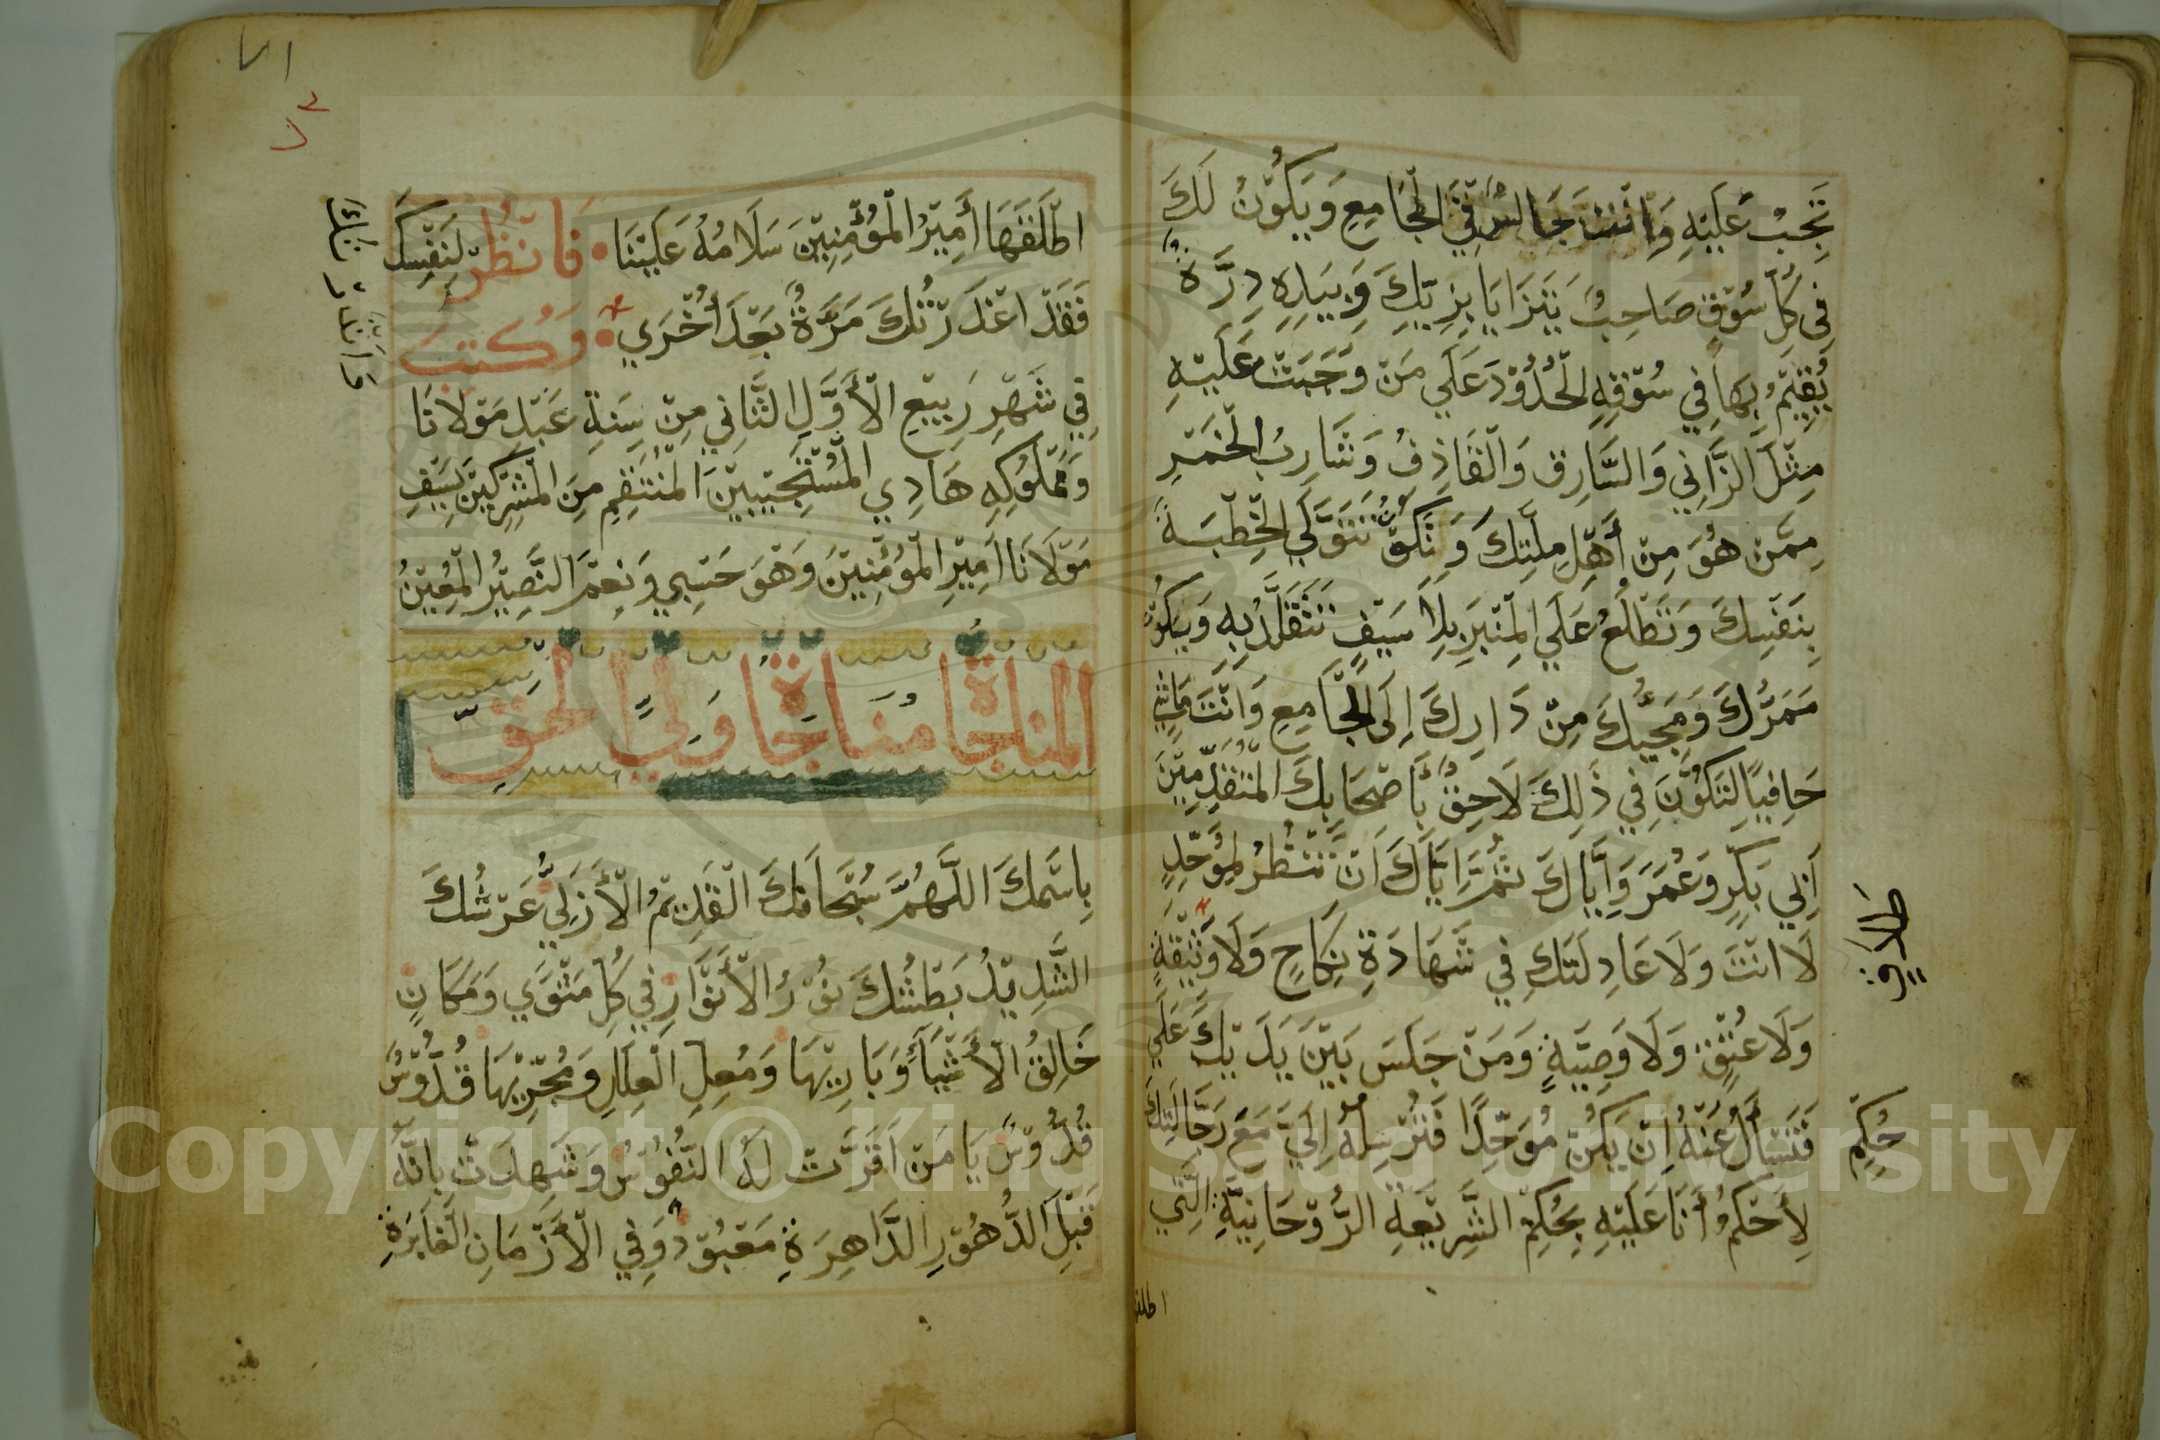 تَجِبُ عَلَيْهِ وَانْتَ جَالِسٌ فِي الْجَامِعِ وَيَكُوْنُ لَكَ
فِي كُلِّ سُوْقٍ صَاحِبٌ يَتَزَايَا بِزِيِّكَ وَبِيَدِهِ دِرَّةٌ
يُقِيْمُ بِهَا فِي سُوْقِهِ الْحُدُوْدَ عَلَي مَنْ وَجَبَتْ عَلَيْهِ
مِثْلَ الزَّانِي وَالسَّارِقِ وَالْقَاذِفُ وَشَارِبُ الْخَمْرِ
مِمَّنْ هُوَ مِنْ أَهْلِ مِلَّتِكَ وَتَكُوْنُ تَتَوَلَّي الْخِطْبَةَ
بِنَفْسِكَ وَتَطْلَعُ عَلَي الْمِنْبَرِ بِلَا سَيْفٍ تَتَقَلَّدُ بِهِ وَيَكُوْنُ
مَمَرُّكَ وَمَجِيُّكَ مِنْ دَارِكَ اِلَي الْجَامِعِ وَانْتَ مَاشِي
حَافِيًا لِتَكُوْنَ فِي ذَلِكَ لَاحِقٌ بَأَصْحَابِكَ الْمُتَقَدِّمِيْنَ
اَبِي بَكْرٍ وَعُمَرَ وَاِيَّاكَ ثُمَّ اِيَّاكَ اَنْ تَنْظُرَ لِمُوَحِّدٍ
لَا انْتَ وَلَا عَادِلَتَكَ فِي شَهَادَةِ نِكَاحٍ وَلَا وَثِيْقَةٍ
وَلَا عِتْقٍ وَلَا وَصِيَّةٍ وَمَنْ جَلَسَ بَيْنَ يَدَيْكَ عَلَي
طلاق
حُكْمٍ
فَتَسْأَلُ عَنْهُ اِنْ يَكُنْ مُوَحِّدًا فَتُرْسِلْهُ اِلَيَّ مَعَ رَجَّالَتِكَ
لِأَحْكُمُ أَنَا عَلَيْهِ بِحُكْمِ الشَّرِيْعَةِ الرُّوْحَانِيَّةِ الَّتِي
اطلقها
٧١
اطْلَقَهَا أَمِيْرُ الْمُؤْمِنِيْنَ سَلَامُهُ عَلَيْنَا فَانْظُرْ لِنَفْسِكَ
فَقَدْ اعْذَرْتُكَ مَرَّةً بَعْدَ أُخْرَي وَكُتِبَ
فِي شَهْرِ رَبِيْعِ الْأَوَّلِ الثَّانِي مِنْ سِنِةِ عَبْدِ مَوْلَانَا
وَمَمْلُوْكِهِ هَادِي الْمُسْتَجِيْبِيْنَ الْمُنْتَقِمِ مِنَ الْمُشْرِكِيْنَ بِسَيْفِ
مَوْلَانَا اَمِيْرِ الْمُؤْمِنِيْنَ وَهْوَ حَسْبِي وَنِعْمَ النَّصِيْرُ الْمُعِيْنُ
المناجاة مُنَاجَاةُ وَلِيِّ الحَقِّ
بِاسْمِكَ اللَّهُمَّ سُبْحَانَكَ الْقَدِيْمُ الْأَزَلِيُّ عَرْشُكَ
الشَّدِيْدُ بَطْشُكَ نُوْرُ الْأَنْوَارِ فِي كُلِّ مَثْوَي وَمَكَانٍ
خَالِقُ الْأَشْيَآءِ وَبَارِيْهَا وَمُعِلِ الْعِلَلِ وَمُجْرِيْهَا قُدُّوْسٌ
قُدُّوْسٌ يَا مَنْ اَقَرَّتْ لَهُ النُّفُوْسُ وَشَهِدَتْ بِانَّهُ
قَبْلَ الدُّهُوْرِ الدَّاهِرَةِ مَعْبُوْدٌ وَفِي الْأَزْمَانِ الْغَابَرَةِ
Copyright © King Saud University